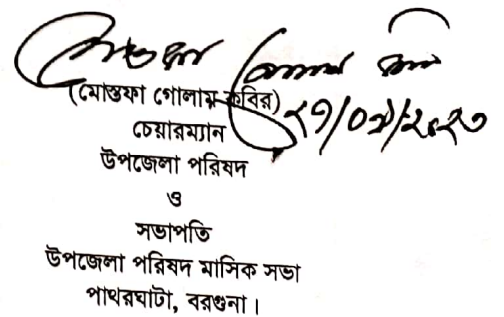 (মোস্তফা গোলাম কবির)
চেয়ারম্যান
উপজেলা পরিষদ
ও
সভাপতি
উপজেলা পরিষদ মাসিক সভা
পাথরঘাটা, বরগুনা।